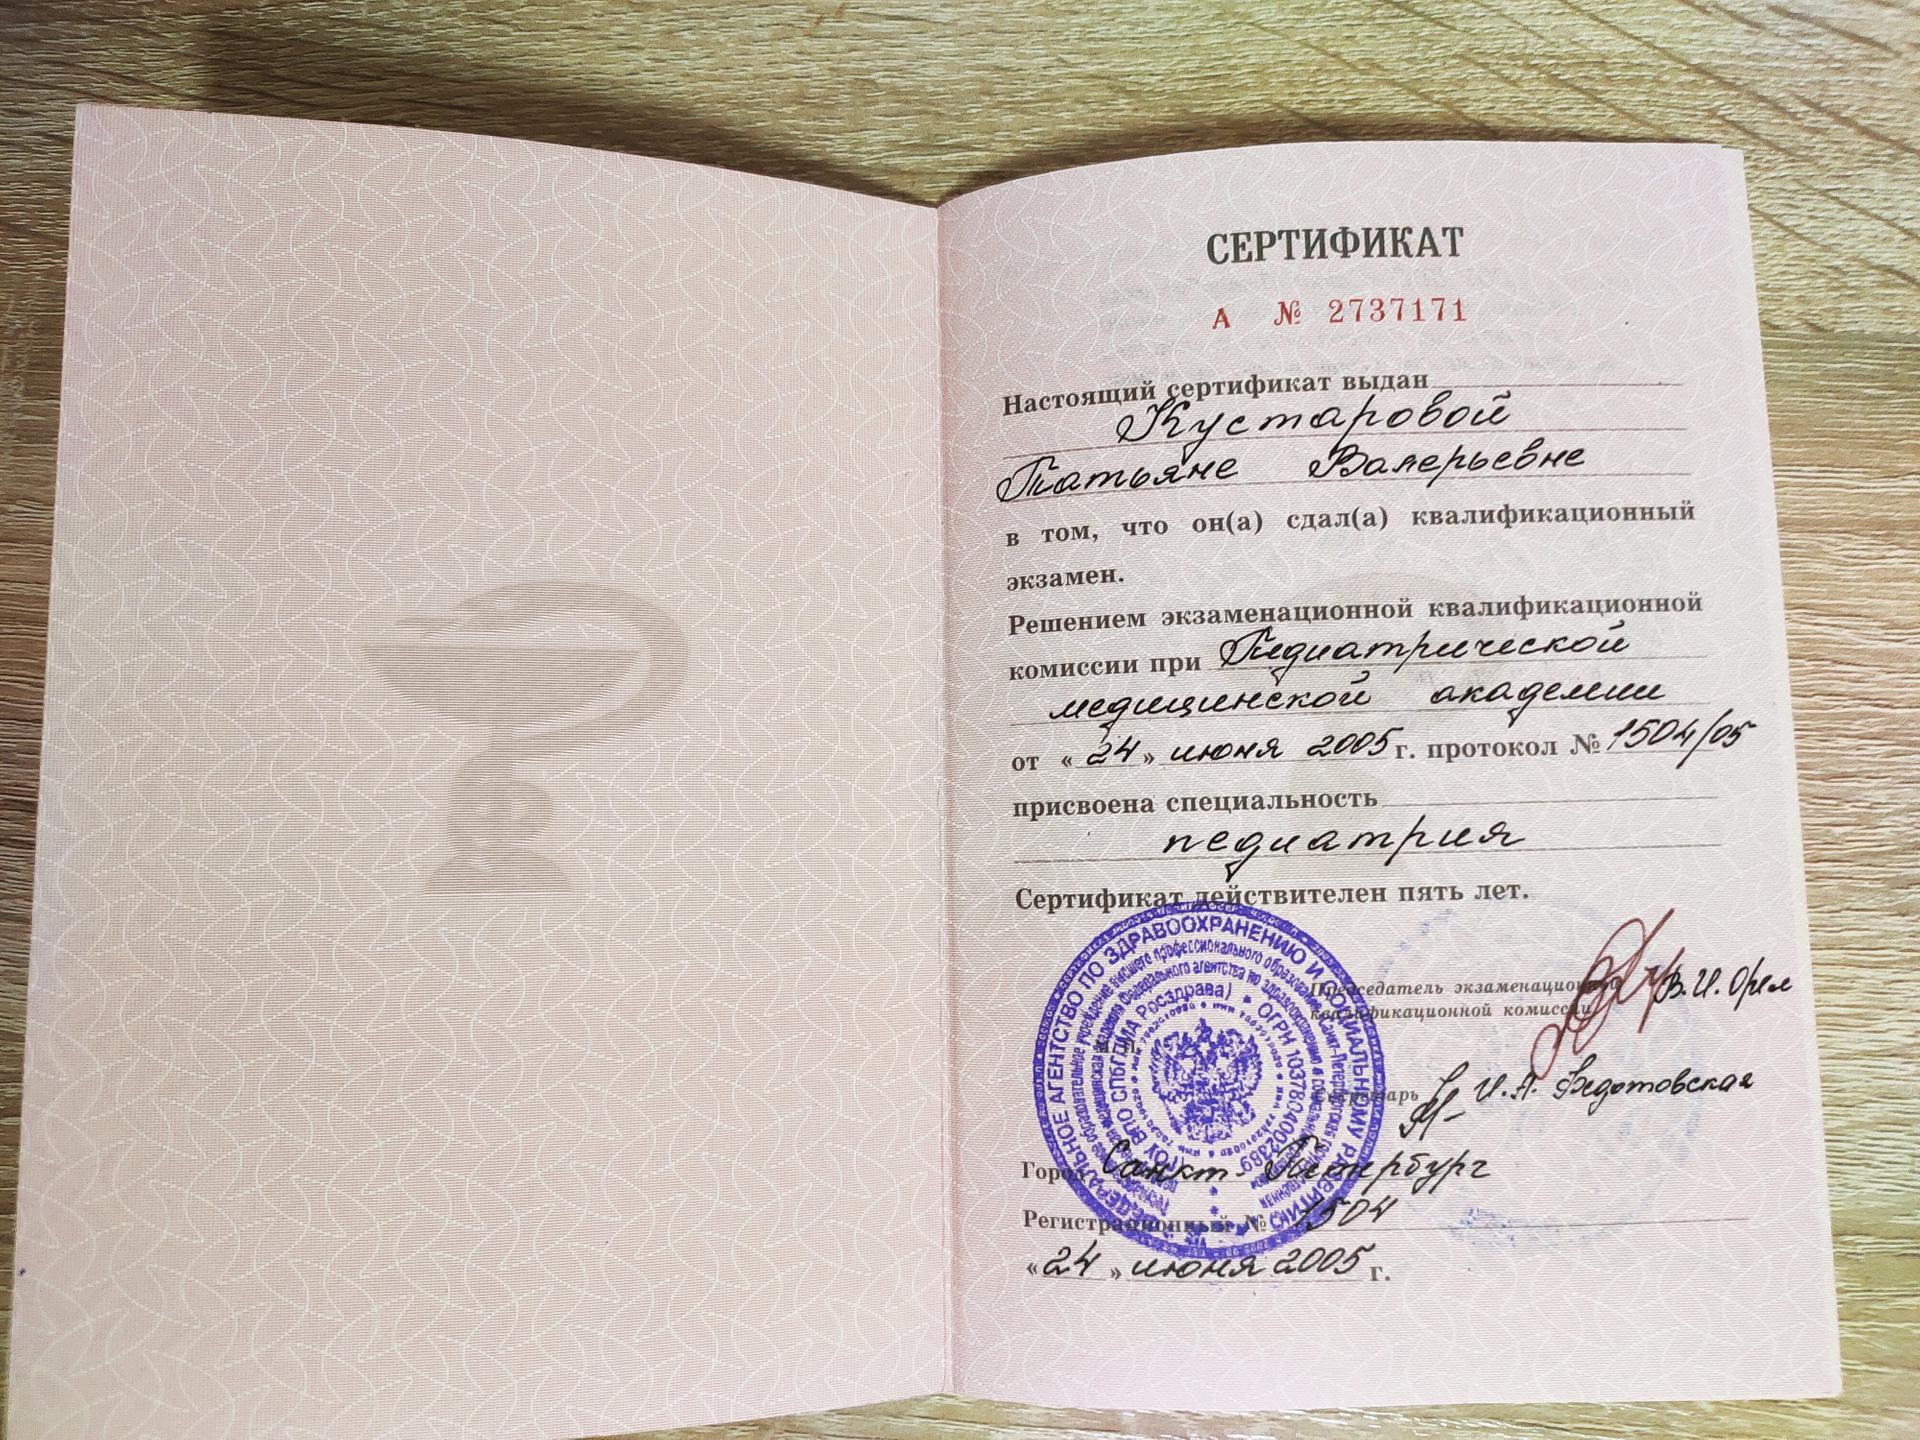 СЕРТИФИКАТ
А № 2737171
Настоящий сертификат выдан
Кустаровой
Татьяне Валерьевне
в том, что он(а) сдал(а) квалификационный
экзамен.
Решением экзаменационной квалификационной
комиссии при Педиатрической
медицинской академии
от « 24 » июня 2005 г. протокол № 1504/05
присвоена специальность
педиатрия
Сертификат действителен пять лет.
ФЕДЕРАЛЬНОЕ АГЕНТСТВО ПО ЗДРАВООХРАНЕНИЮ И СОЦИАЛЬНОМУ РАЗВИТИЮ
(ГОУ ВПО СПбГПМА Росздрава) * ОГРН 1037804002389
Председатель экзаменационно
квалификационной комиссии В.И. Орел
М.П.
Секретарь И.А. Федотовская
Город Санкт-Петербург
Регистрационный № 1504
« 24 » июня 2005 г.